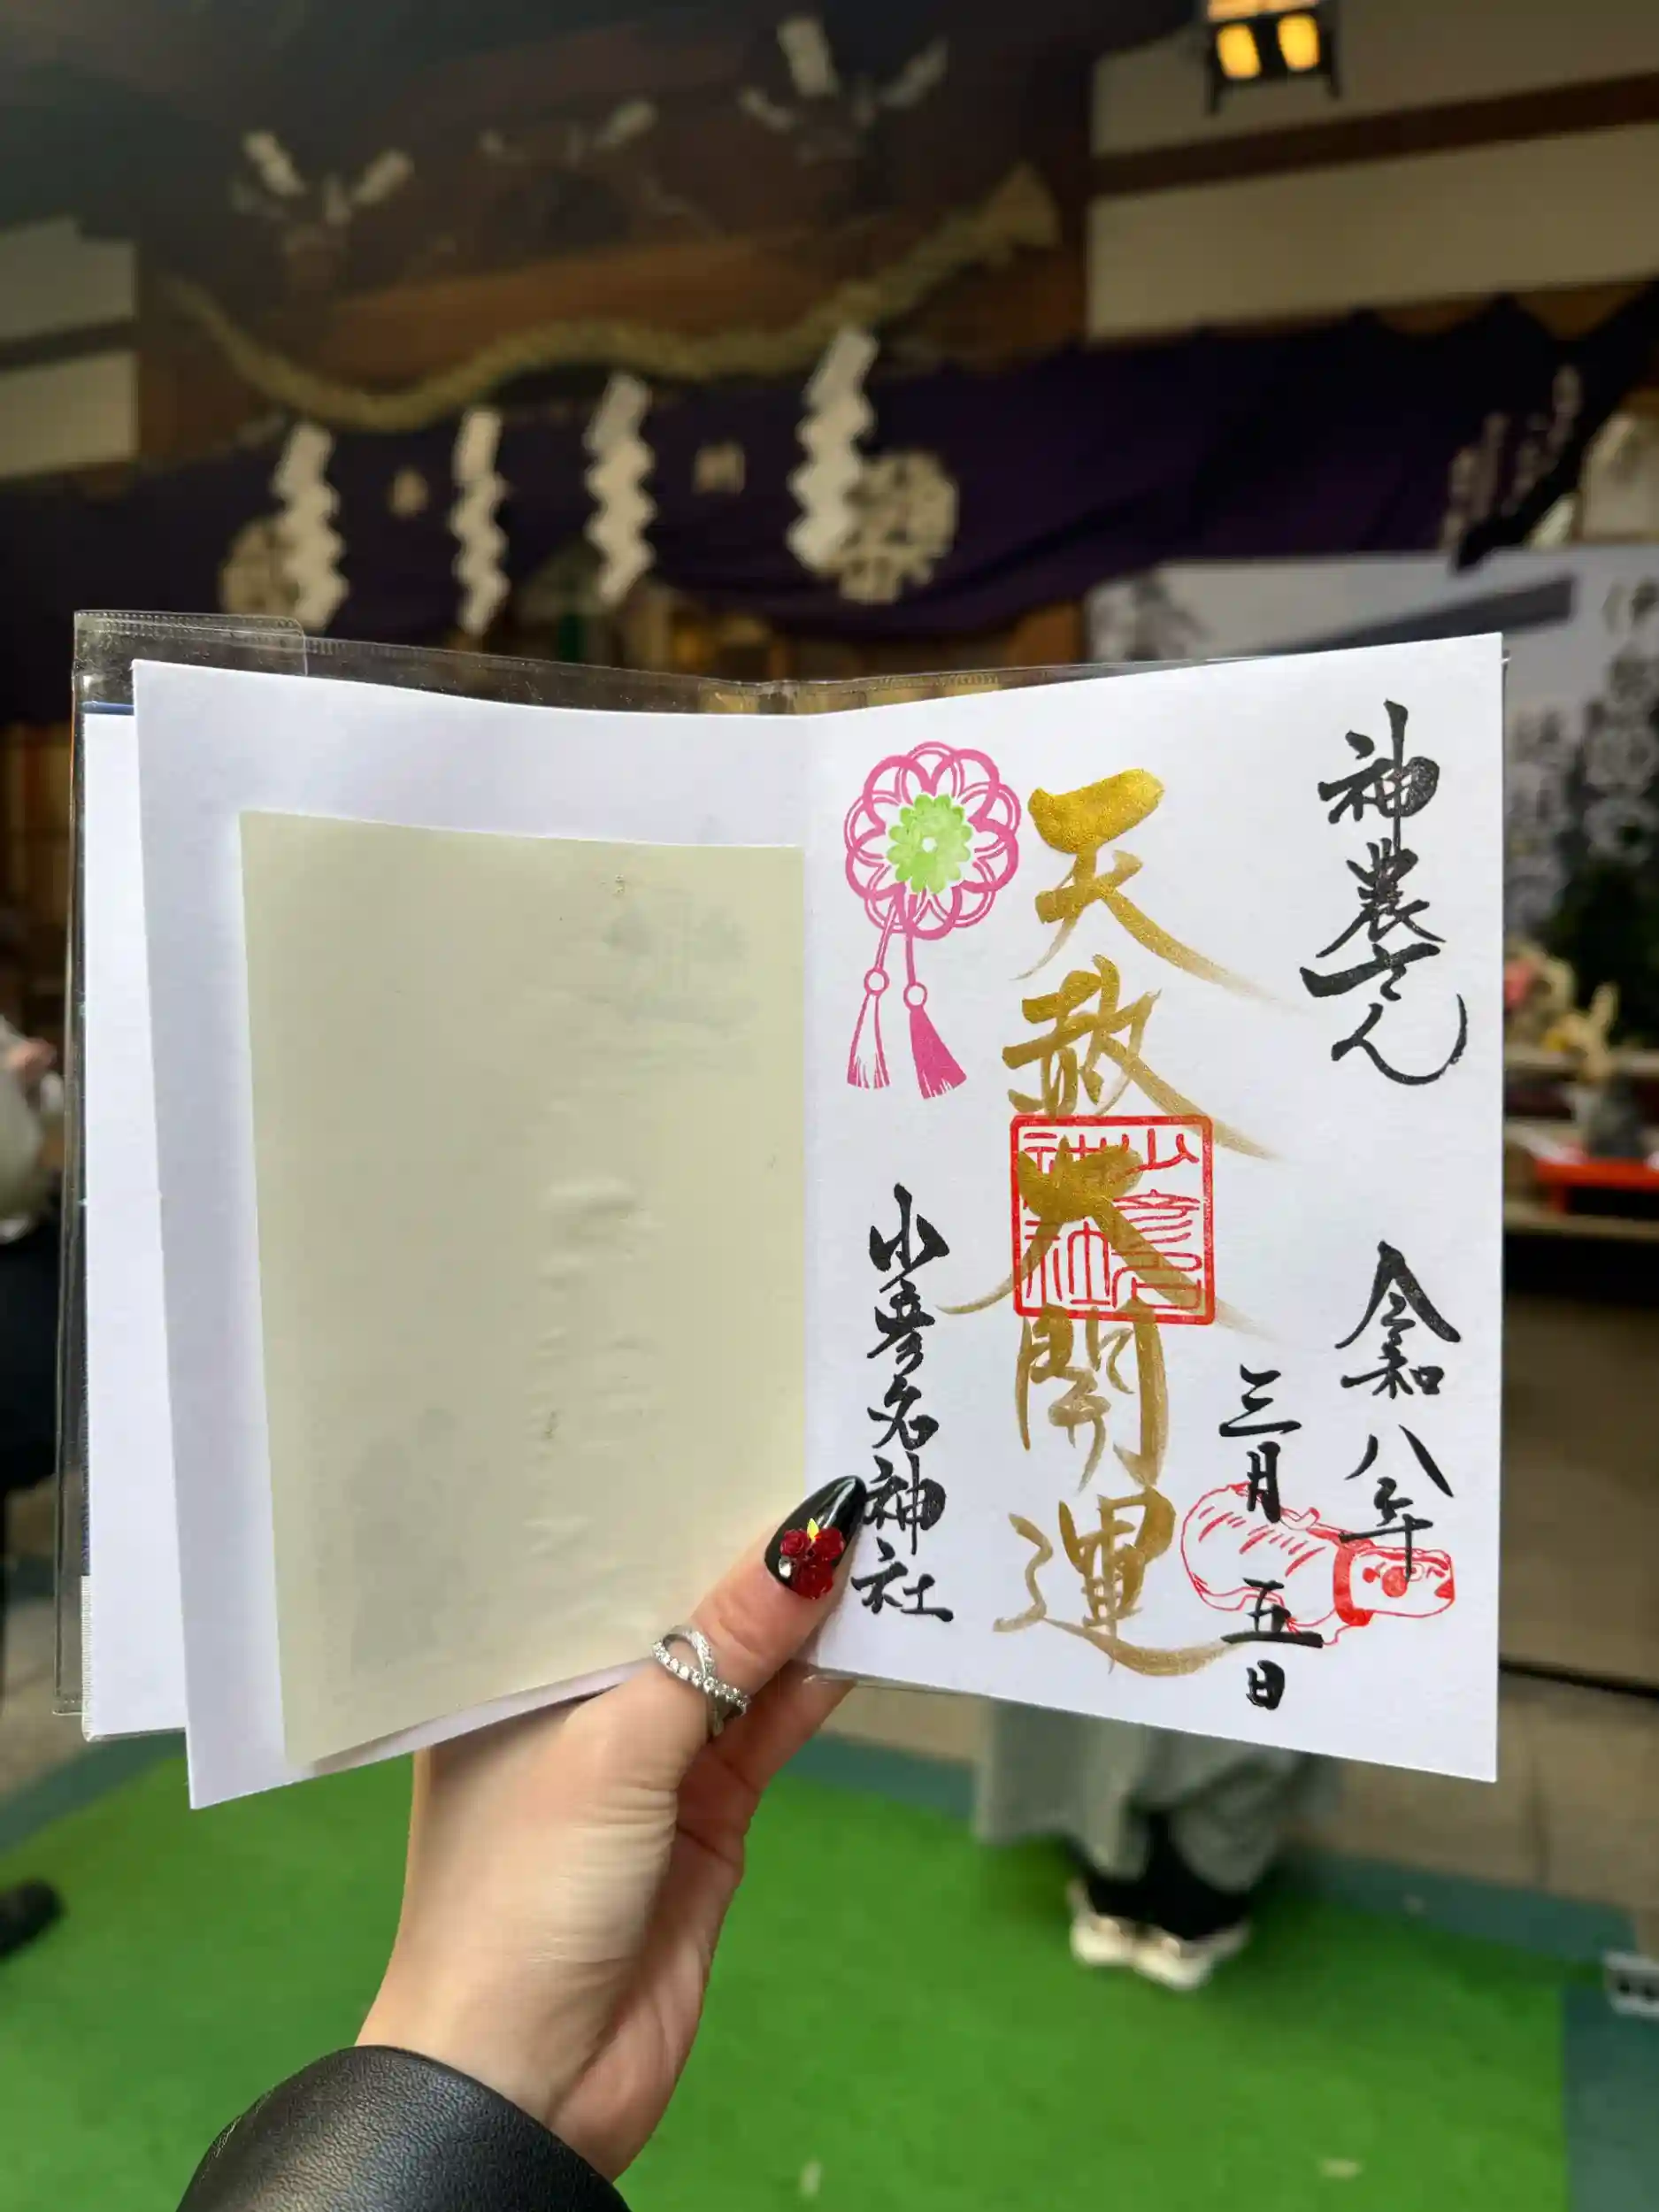 神農さん
令和八年
三月五日
天赦大開運
少彦名神社
小彦名神社